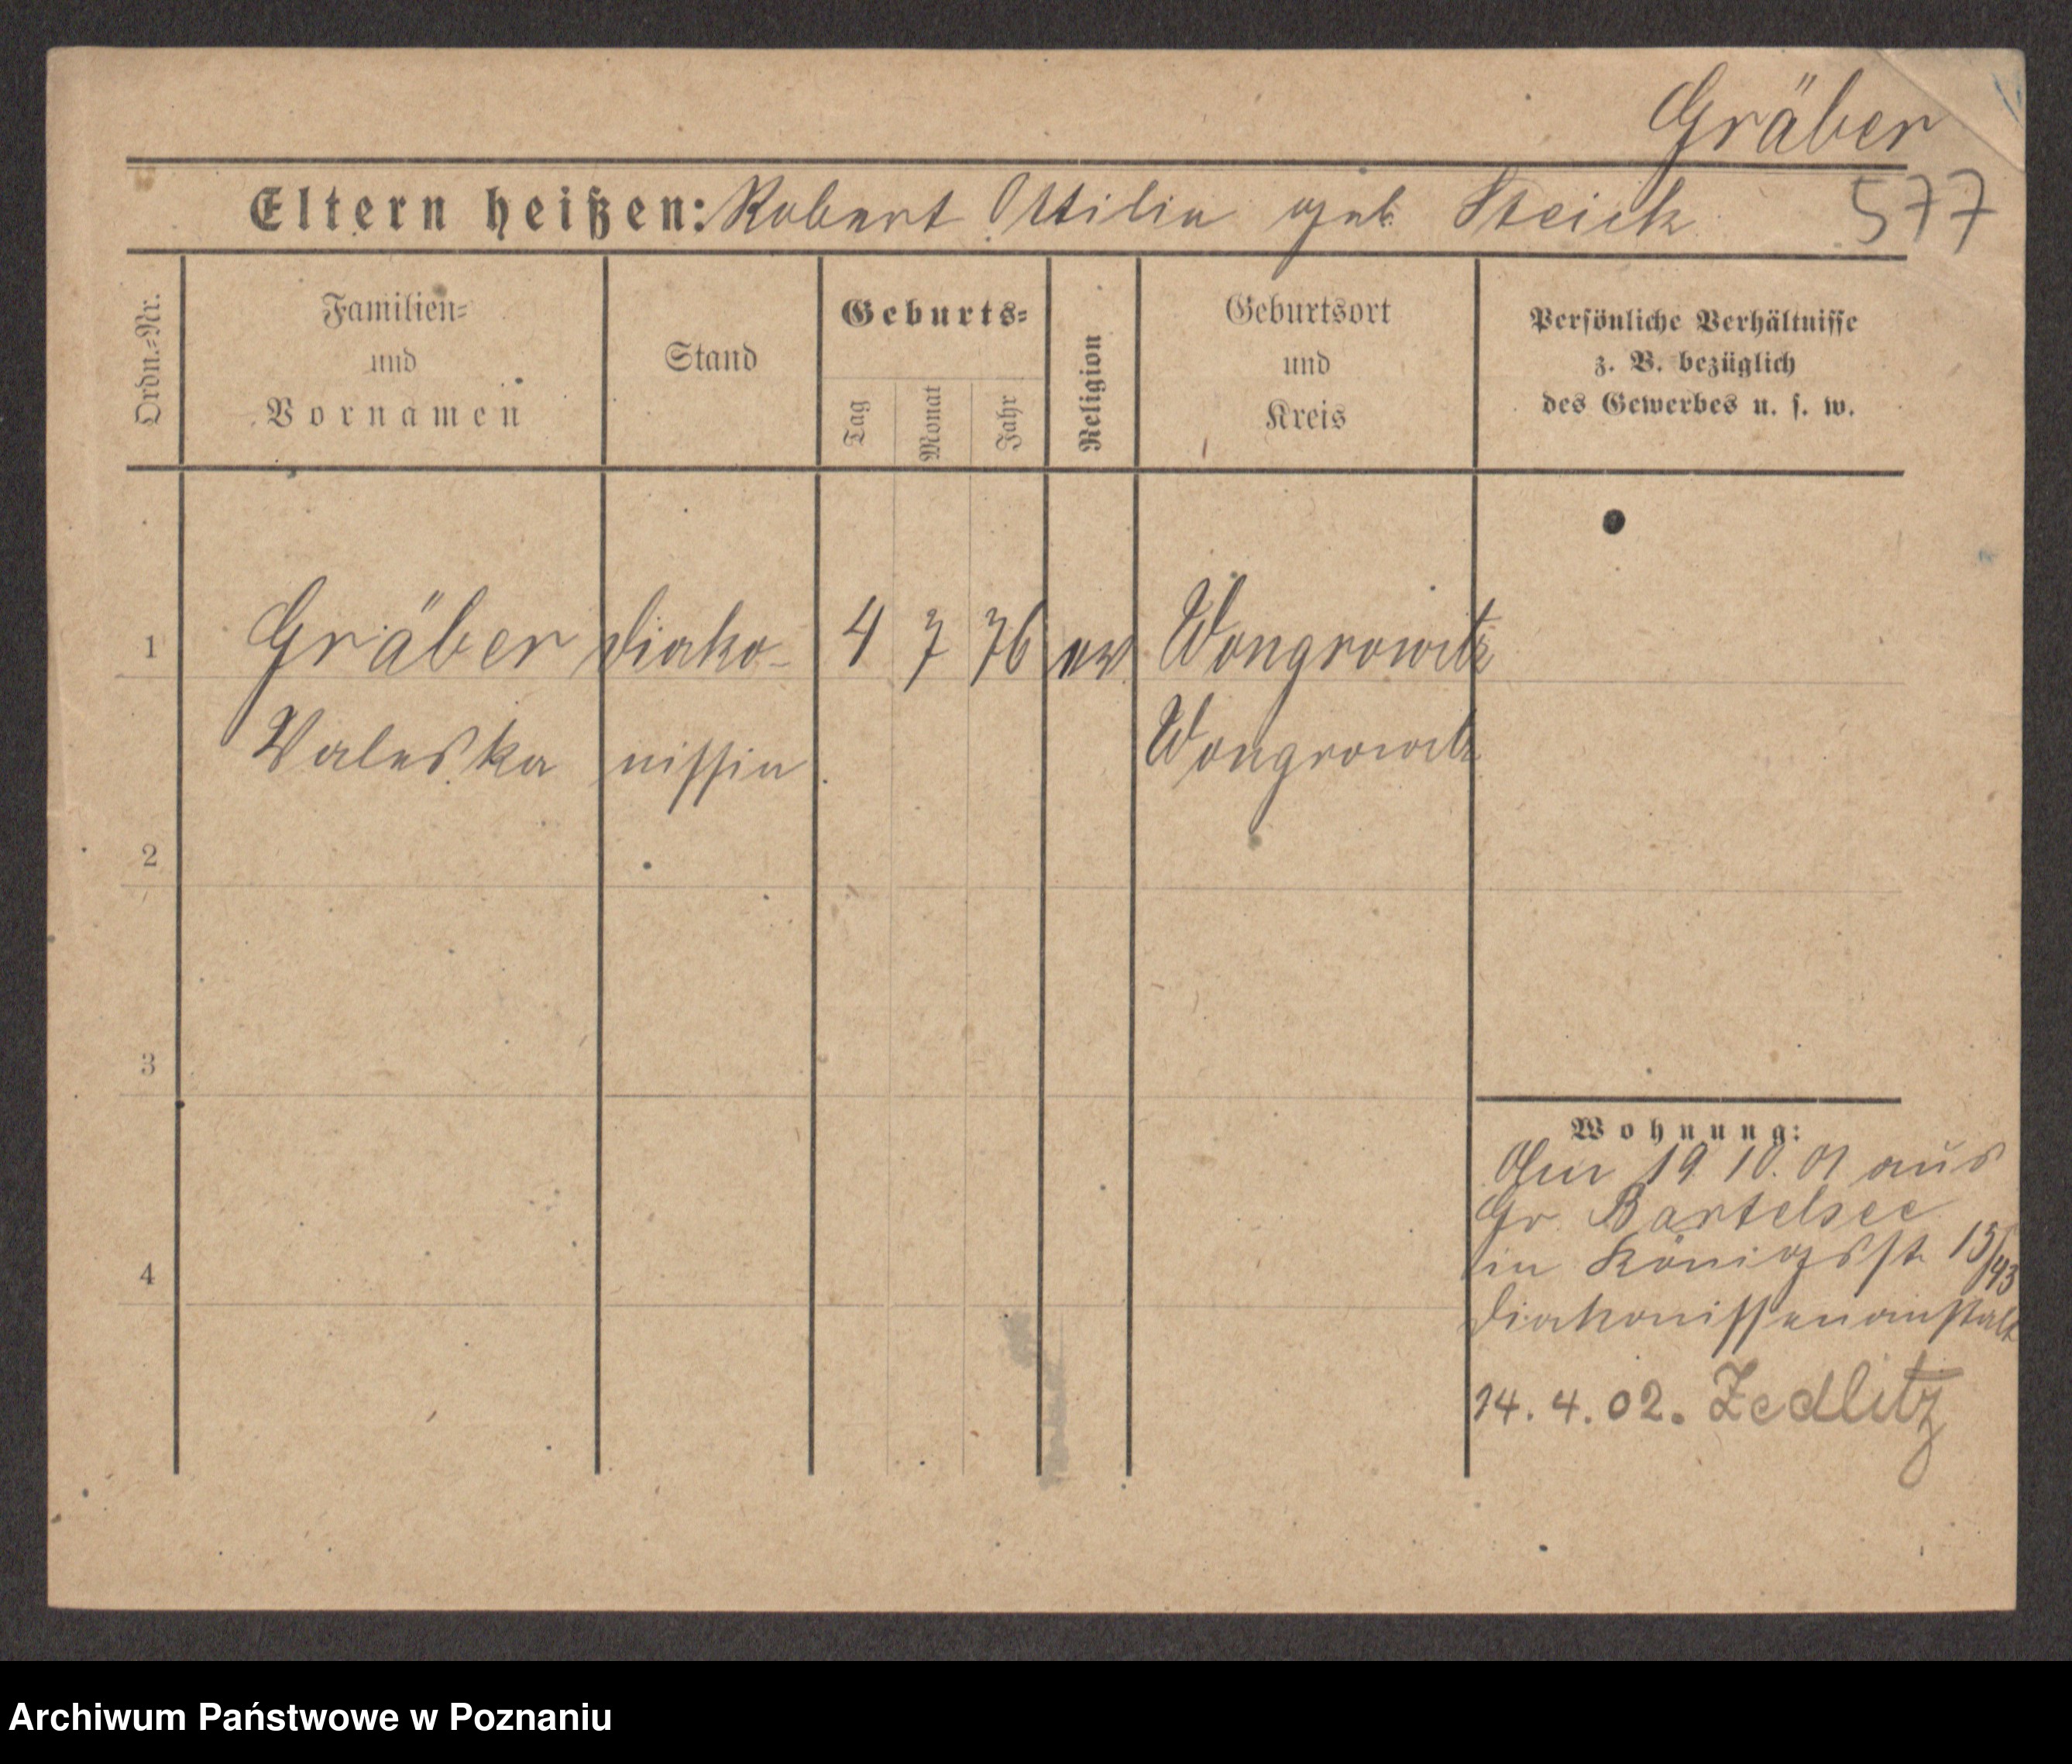 Gräber
Eltern heißen: Robert Ottilie geb. Steick 577
Ordn.-Nr.
Familien-
und
Vornamen
Stand
Geburts-
Tag
Monat
Jahr
Religion
Geburtsort
und
Kreis
Persönliche Verhältnisse
z. B. bezüglich
des Gewerbes u. s. w.
1 Gräber Diako- 4 7 76 ev Wongrowitz
Waleska nissin Wongrowitz
2
3
4
Wohnung:
19 10. 01 aus
Gr. Bartelsee
in Königsst. 15/
Diakonissenanstalt
14. 4. 02. Zedlitz
Archiwum Państwowe w Poznaniu